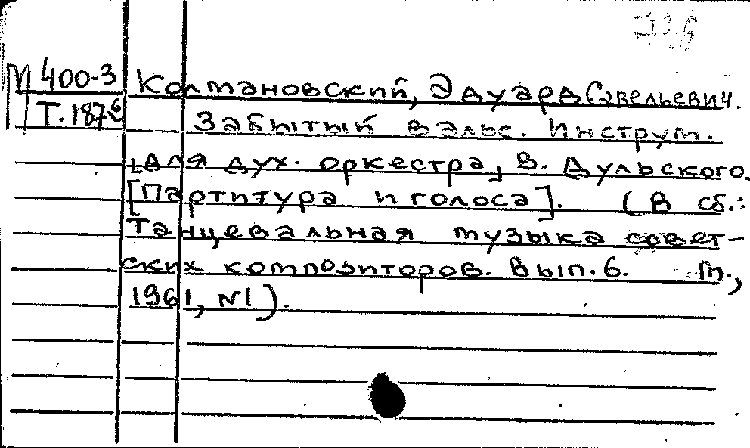 М 400-3 Колмановский, Эдуард Савельевич.
Т.187-6 Забытый вальс. Инструм.
для дух. оркестра, В. Дульского.
[Партитура и голоса]. (В сб.:
Танцевальная музыка совет-
ских композиторов. Вып. 6. М.,
1961, №1).